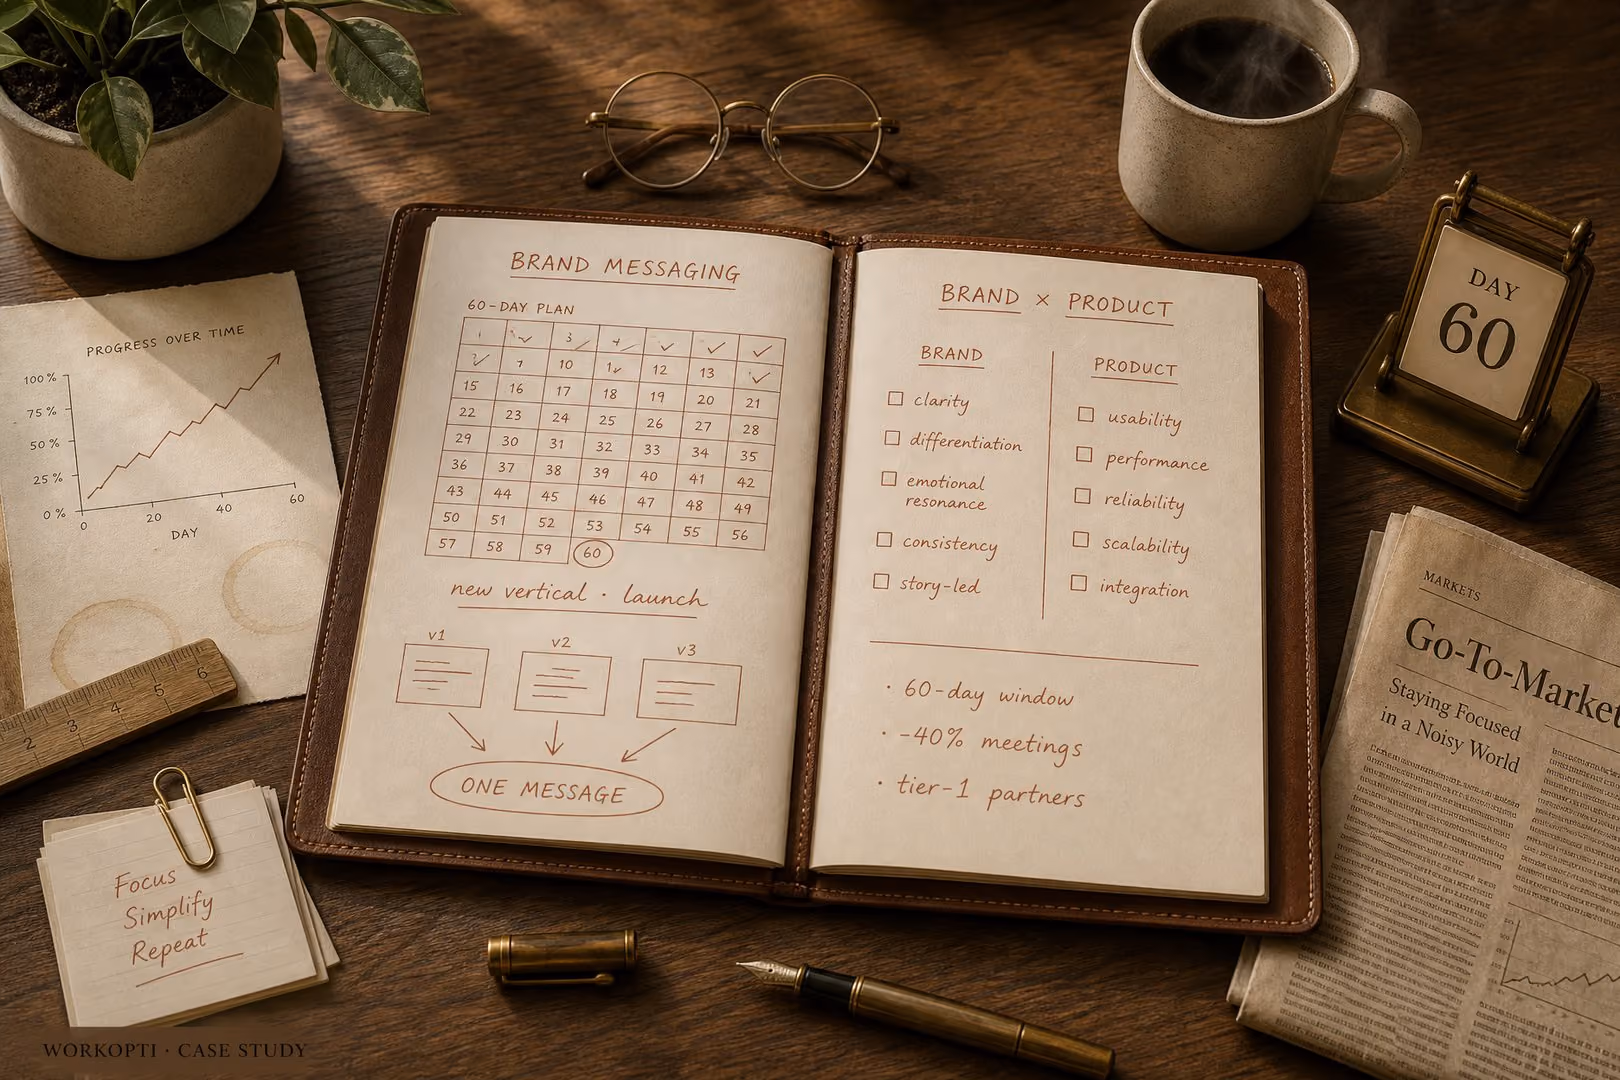 PROGRESS OVER TIME
100%
75%
50%
25%
0%
0 20 40 60
DAY
2 3 4 5 6
Focus
Simplify
Repeat
WORKOPTI · CASE STUDY
BRAND MESSAGING
60-DAY PLAN
3
10 12 13
15 16 17 18 19 20 21
22 23 24 25 26 27 28
29 30 31 32 33 34 35
36 37 38 39 40 41 42
43 44 45 46 47 48 49
50 51 52 53 54 55 56
57 58 59 60
new vertical · launch
v1 v2 v3
ONE MESSAGE
BRAND × PRODUCT
BRAND
clarity
differentiation
emotional
resonance
consistency
story-led
PRODUCT
usability
performance
reliability
scalability
integration
· 60-day window
· -40% meetings
· tier-1 partners
DAY
60
MARKETS
Go-To-Market
Staying Focused
in a Noisy World